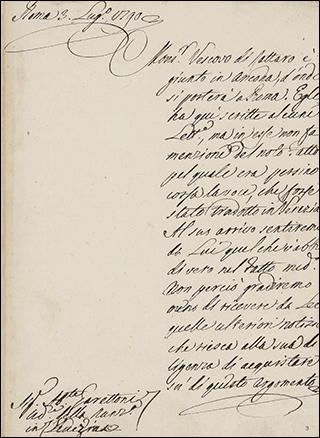 Roma 3. Lug.º 1790.
Mons.r Vescovo di Cattaro è
giunto in Ancona, d'onde
si porterà a Roma. Egli
ha quì scritte alcune
Lett.e, ma in esse non fa
menzione del noto fatto
pel quale era persino
corsa la voce, che fosse
stato tradotto in Venezia.
Al suo arrivo sentiremo
da Lui quel che vi sia
di vero nel fatto med.º
Non perciò gradiremo
meno di ricevere da Lei
quelle ulteriori notizie
che riesca alla sua di
ligenza di acquistare
su di questo argomento
Sig. Ab.te
Ud.e della Nunz.a
in Venezia